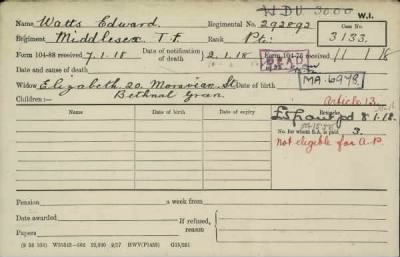 WDU 3000 W.I.
Name Watts Edward. Regimental No. 292893 Case No.
Regiment Middlesex T.F. Rank Pte. 3133.
Form 104-88 received 7.1.18 Date of notification of death 2.1.18 Form 104-76 received 11/1/18
DEAD
Date and cause of death
MA.6978.
Widow Elizabeth. 20. Moravian St. Date of birth
Bethnal Gren. Article 13.
Children:— Date of birth Date of expiry Remarks
£5 grant pd 8.1.18.
No. for whom S.A. is paid 3.
not eligible for A.P.
Pension a week from
Date awarded If refused, reason
Papers
(9 38 103) W35243—602 22,000 9/17 HWV(P1425) G15/251